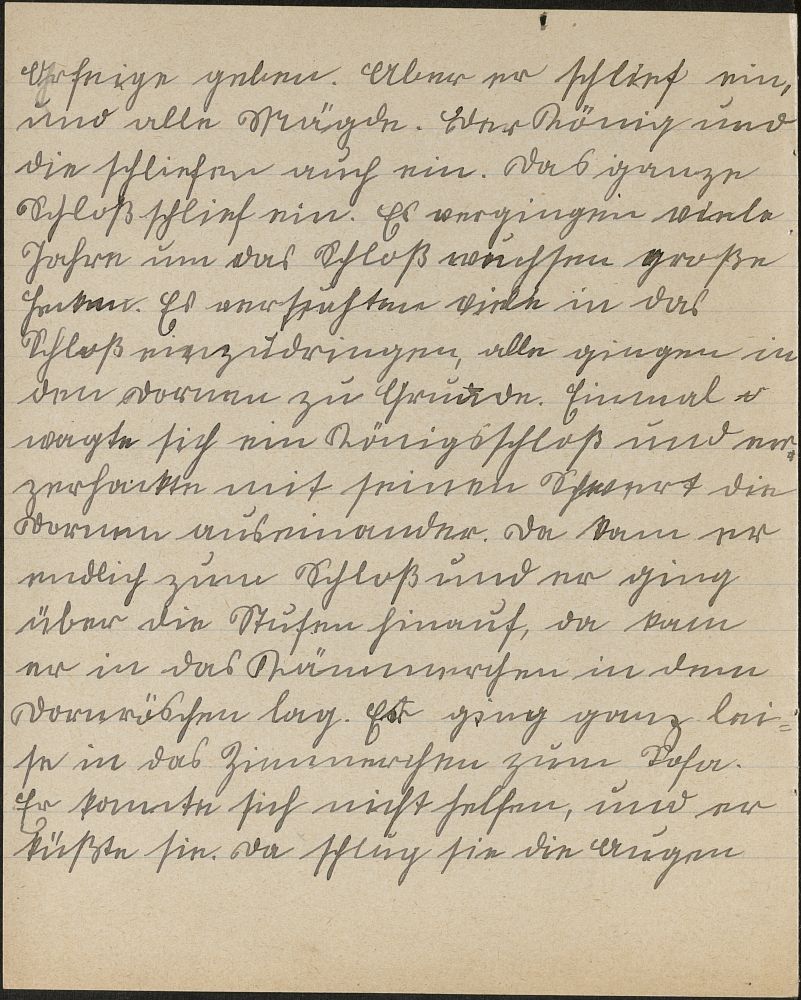 Ohrfeige geben. Aber er schlief ein,
und alle Mägde. Der König und
die schliefen auch ein. Das ganze
Schloß schlief ein. Es vergingen viele
Jahre um das Schloß wuchsen große
Hecken. Es versuchten viele in das
Schloß einzudringen, alle gingen in
den Dornen zu Grunde. Einmal
wagte sich ein Königsschloß und er
zerhackte mit seinen Schwert die
Dornen auseinander. Da kam er
endlich zum Schloß und er ging
über die Stufen hinauf, da kam
er in das Kämmerchen in dem
Dornröschen lag. Er ging ganz lei=
se in das Zimmerchen zum Sofa.
Er konnte sich nicht helfen, und er
küßte sie. Da schlug sie die Augen